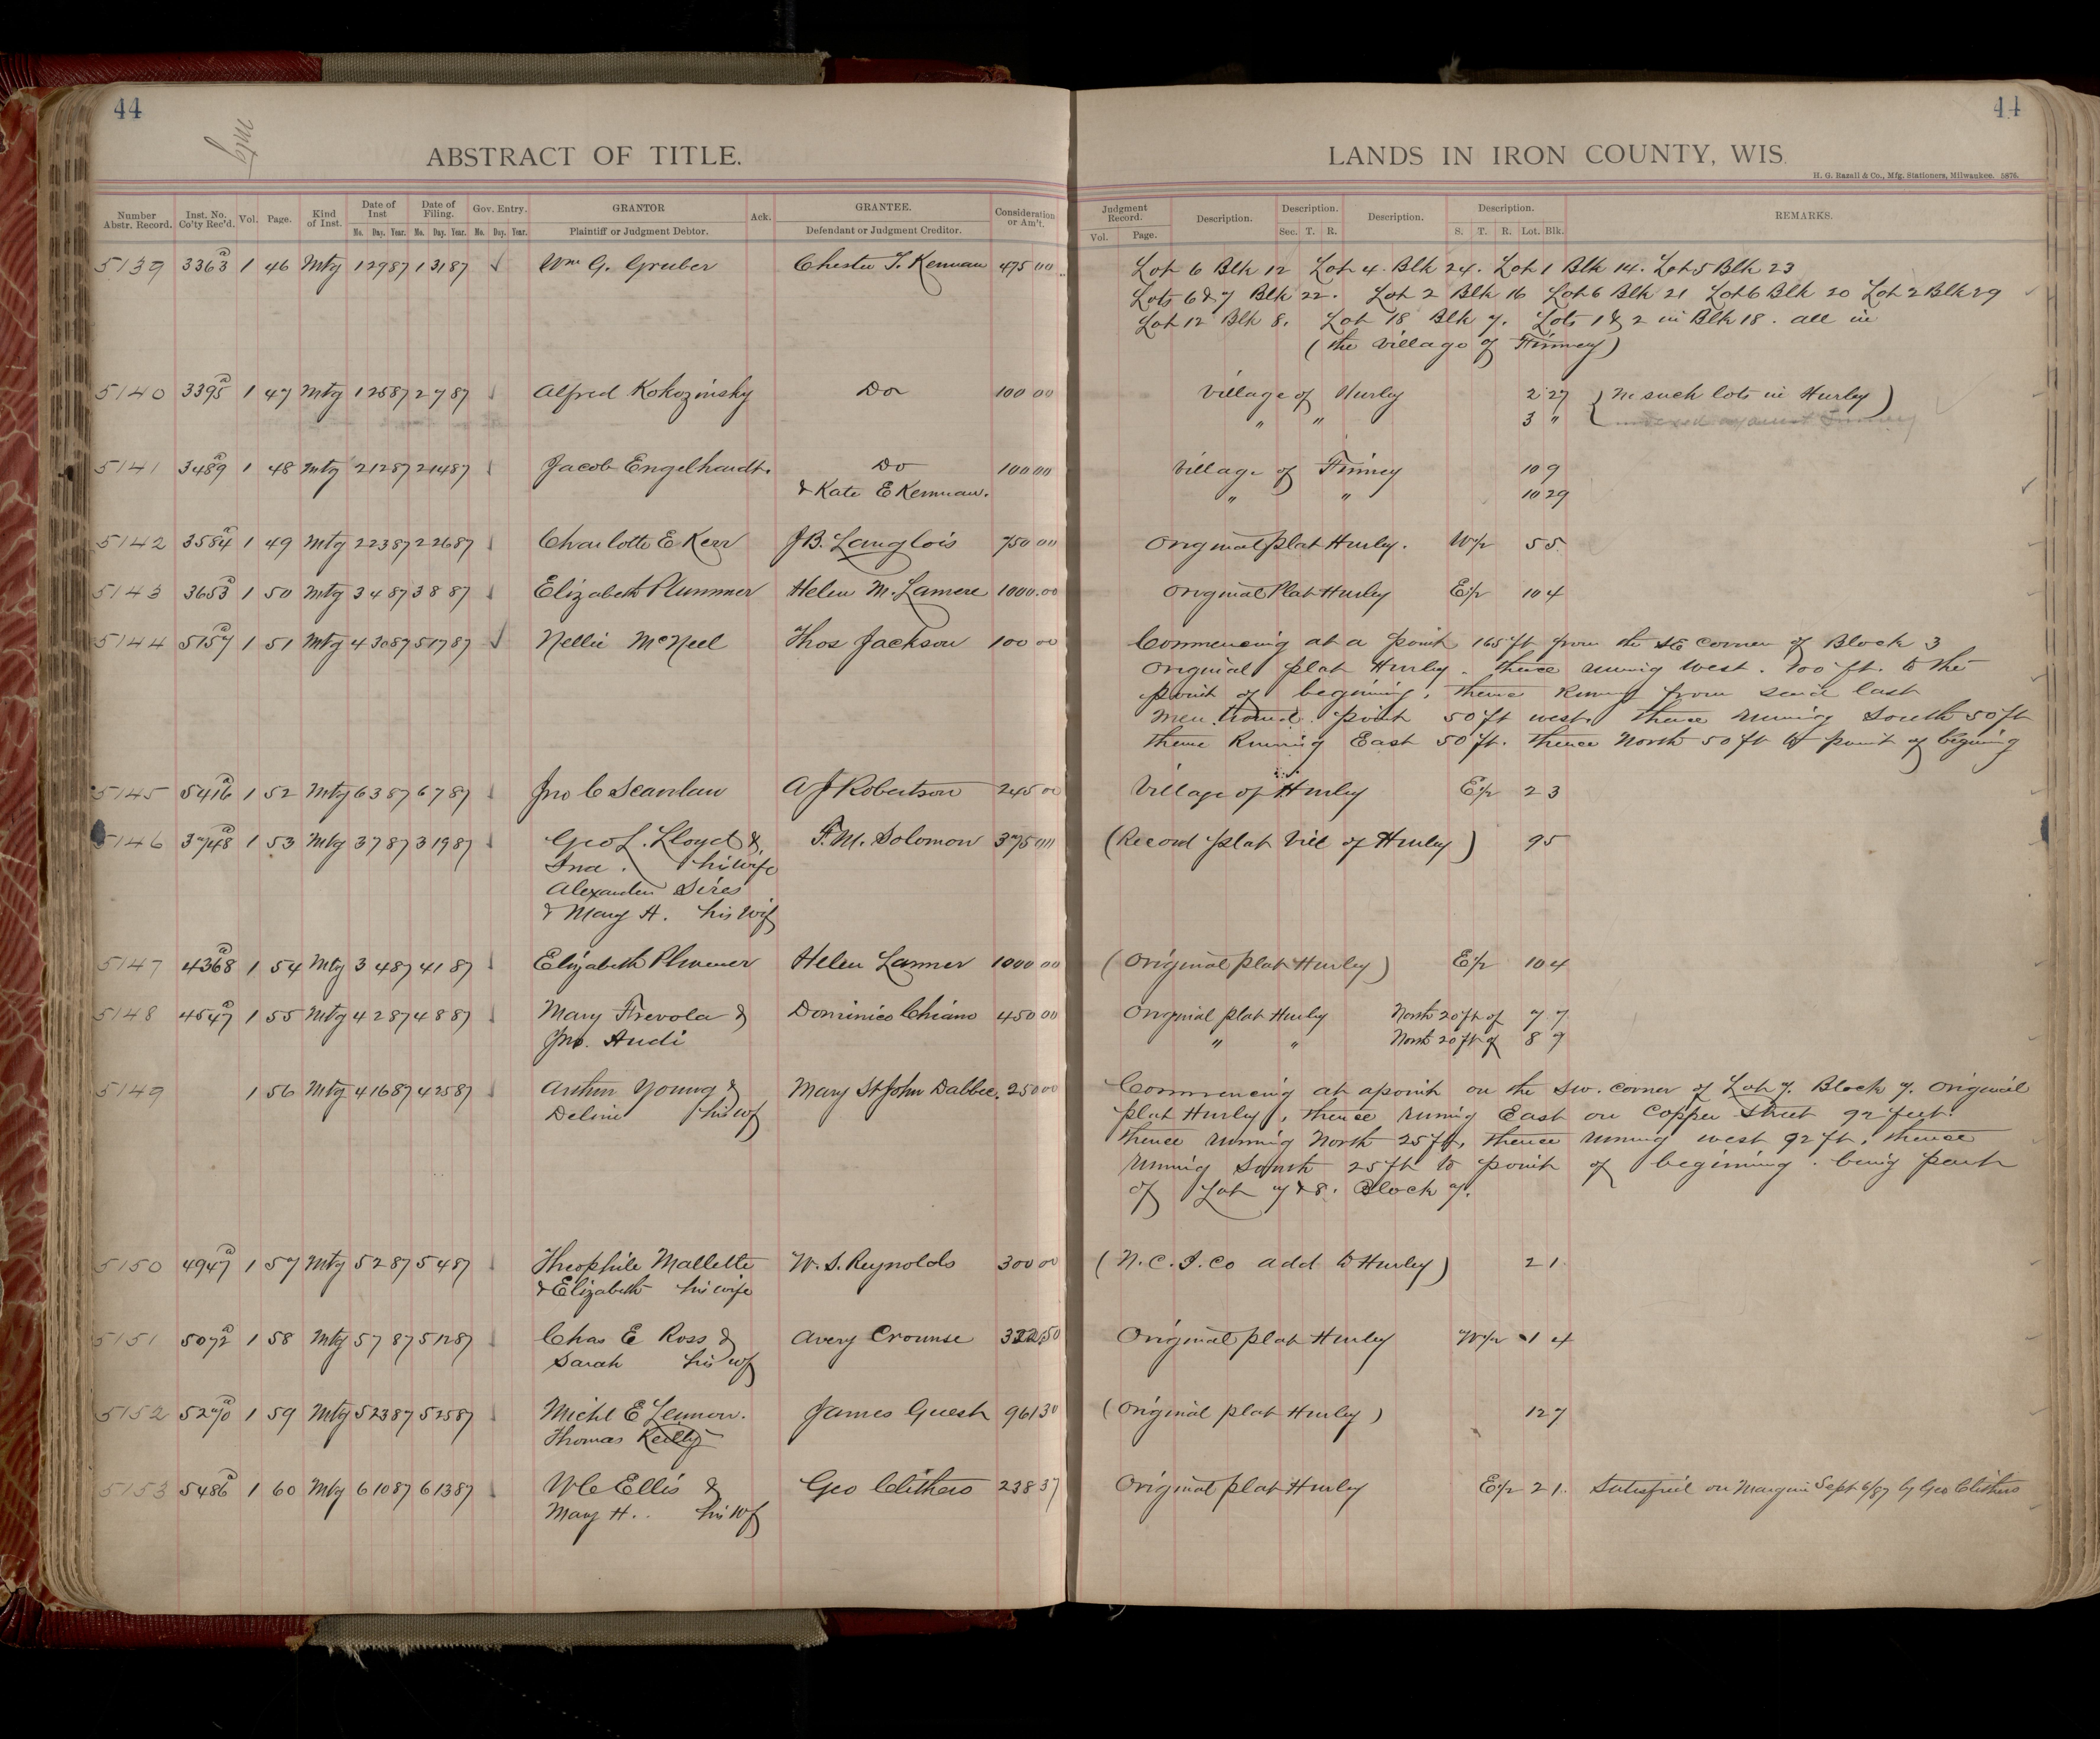 44
44
Mtg
ABSTRACT OF TITLE.
LANDS IN IRON COUNTY, WIS.
H. G. Razall & Co., Mfg. Stationers, Milwaukee. 5876.
Number Abstr. Record. Inst. No. Co'ty Rec'd. Vol. Page. Kind of Inst. Date of Inst Mo. Day. Year. Date of Filing. Mo. Day. Year. Gov. Entry. Mo. Day. Year. GRANTOR Plaintiff or Judgment Debtor. Ack. GRANTEE. Defendant or Judgment Creditor. Consideration or Am't.
Judgment Record. Vol. Page. Description. Description. Sec. T. R. Description. Description. S. T. R. Lot. Blk. REMARKS.
5139 3363 a 1 46 Mtg 1 29 87 1 31 87 √ Wm G. Gruber Chester T. Kennan 475 00 Lot 6 Blk 12 Lot 4 Blk 24. Lot 1 Blk 14. Lot 5 Blk 23
Lots 6 & 7 Blk 22. Lot 2 Blk 16 Lot 6 Blk 21 Lot 6 Blk 20 Lot 2 Blk 29
Lot 12 Blk 8. Lot 18 Blk 7. Lots 1 & 2 in Blk 18. all in
(the Village of Finney)
5140 3395 a 1 47 Mtg 1 25 87 2 7 87 √ Alfred Kokozinsky Do 100 00 Village of Hurley 2 27 (No such lots in Hurley)
" " 3 "
5141 3489 a 1 48 Mtg 2 12 87 2 14 87 √ Jacob Engelhardt. Do 100 00 Village of Finney 10 9
& Kate E Kennan. " " 10 29
5142 3584 a 1 49 Mtg 2 23 87 2 26 87 √ Charlotte E Kerr J B. Langlois 750 00 Original plat Hurley. W½ 5 5
5143 3653 a 1 50 Mtg 3 4 87 3 8 87 √ Elizabeth Plummer Helen M. Lamere 1000.00 Original Plat Hurley E½ 10 4
5144 5157 a 1 51 Mtg 4 30 87 5 17 87 √ Nellie McNeel Thos Jackson 100 00 Commencing at a point 165 ft from the SE corner of Block 3
Original plat Hurley. thence runing West. 100 ft. to the
point of begining, thence Runing from said last
mentioned point 50 ft west. thence runing South 50 ft
thence Runing East 50 ft. thence North 50 ft to point of begining
5145 5416 a 1 52 Mtg 6 3 87 6 7 87 √ Jno C Scanlan A J Robertson 245 00 Village of Hurley E½ 2 3
5146 3748 a 1 53 Mtg 3 7 87 3 19 87 √ Geo L. Lloyd & F. M. Solomon 375 00 (Record plat Vill of Hurley) 9 5
Ina. his wife
Alexander Sires
& Mary A. his wif
5147 4368 a 1 54 Mtg 3 4 87 4 1 87 √ Elizabeth Plummer Helen Lanmer 1000 00 (Original plat Hurley) E½ 10 4
5148 4547 a 1 55 Mtg 4 2 87 4 8 87 √ Mary Trevola & Dominico Chiano 450 00 Original plat Hurley North 20 ft of 7 7
Jno. Audi " " North 20 ft of 8 7
5149 1 56 Mtg 4 16 87 4 25 87 √ Arthur Young & Mary St John Dabbee. 250 00 Commencing at a point on the SW. corner of Lot 7. Block 7. Original
Deline his wf plat Hurley, thence runing East on Copper Street 92 feet.
thence running North 25 ft, thence running west 92 ft, thence
running South 25 ft to point of beginning. being part
of Lot 7 & 8. Block 7.
5150 4947 a 1 57 Mtg 5 2 87 5 4 87 √ Theophile Mallette W. S. Reynolds 300 00 (N. C. I. Co add to Hurley) 2 1
& Elizabeth his wife
5151 5072 a 1 58 Mtg 5 7 87 5 12 87 √ Chas E Ross & Avery Crounse 322.50 Original plat Hurley W½ 1 4
Sarah his wf
5152 5270 a 1 59 Mtg 5 23 87 5 25 87 √ Michl E Lennon. James Guest 961 30 (Original plat Hurley) 12 7
Thomas Reilly
5153 5486 a 1 60 Mtg 6 10 87 6 13 87 √ W C Ellis & Geo Clithero 238 37 Original plat Hurley E½ 2 1. Satisfied on Margin Sept 6/87 by Geo Clithero
Mary H. his wf